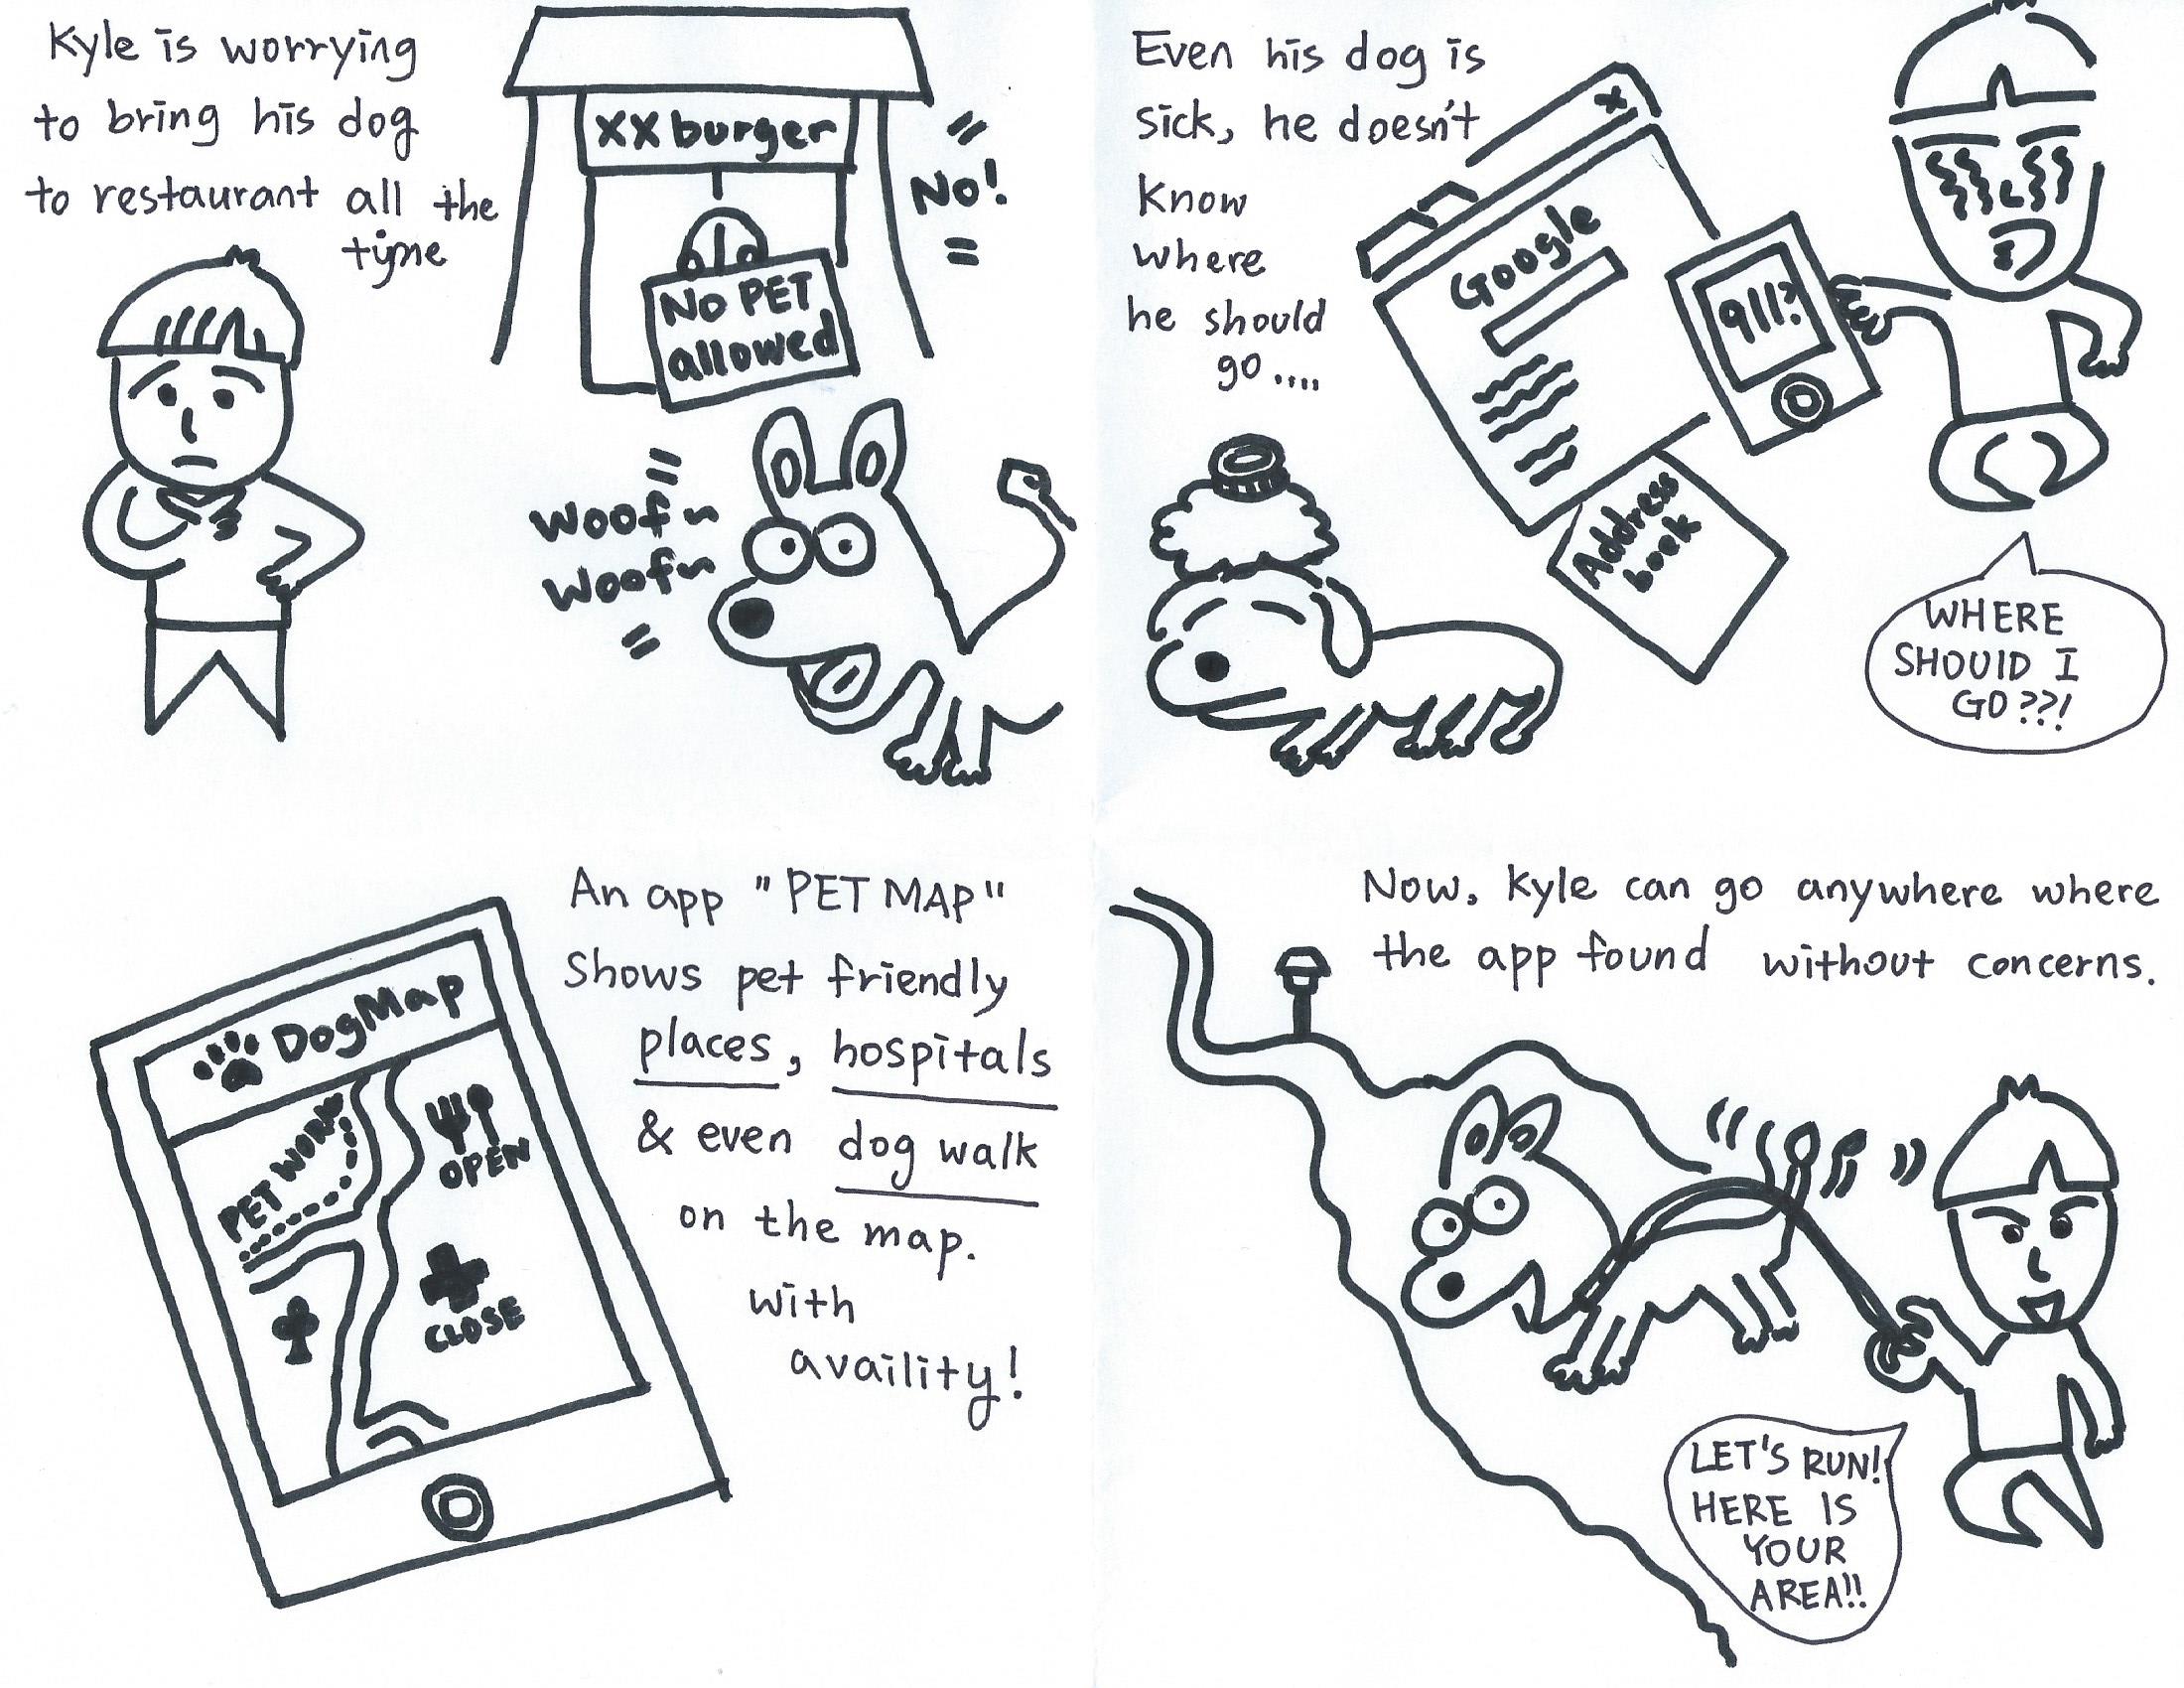 Kyle is worrying
to bring his dog
to restaurant all the
time
XX burger
No!
No PET
allowed
Woof~
Woof~
Even his dog is
sick, he doesn't
know
where
he should
go ....
X
Google
911?
Address
book
WHERE
SHOULD I
GO??!
An app "PET MAP"
shows pet friendly
places, hospitals
& even dog walk
on the map.
with
availity!
DogMap
PET WORK
OPEN
CLOSE
Now, Kyle can go anywhere where
the app found without concerns.
LET'S RUN!
HERE IS
YOUR
AREA!!